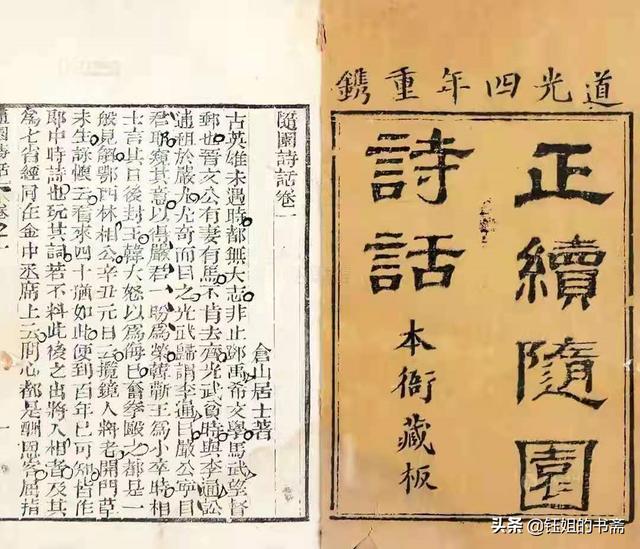 道光四年重鐫
正續隨園
詩話
本衙藏板
隨園詩話卷一
倉山居士著
古英雄未遇時都無大志非止鄧禹希文學馬武望督
郵也晉文公有妻有馬不肯去齊光武貧時與李通訟
逋租於嚴尤尤奇而目之光武歸謂李通曰嚴公寧目
君耶窺其意以得嚴君一盼爲榮韓蘄王爲小卒時相
士言其日後封王韓大怒以爲侮己奮拳毆之都是一
般見解鄂西林相公辛丑元日云攬鏡人將老開門草
未生詠懷云看來四十猶如此便到百年已可知皆作
郎中時詩也玩其詞若不料此後之出將入相者及其
爲七省經在金中丞席上云問心都是酬國客屈指
隨園詩話
卷之一
一
头条 @钰姐的书斋